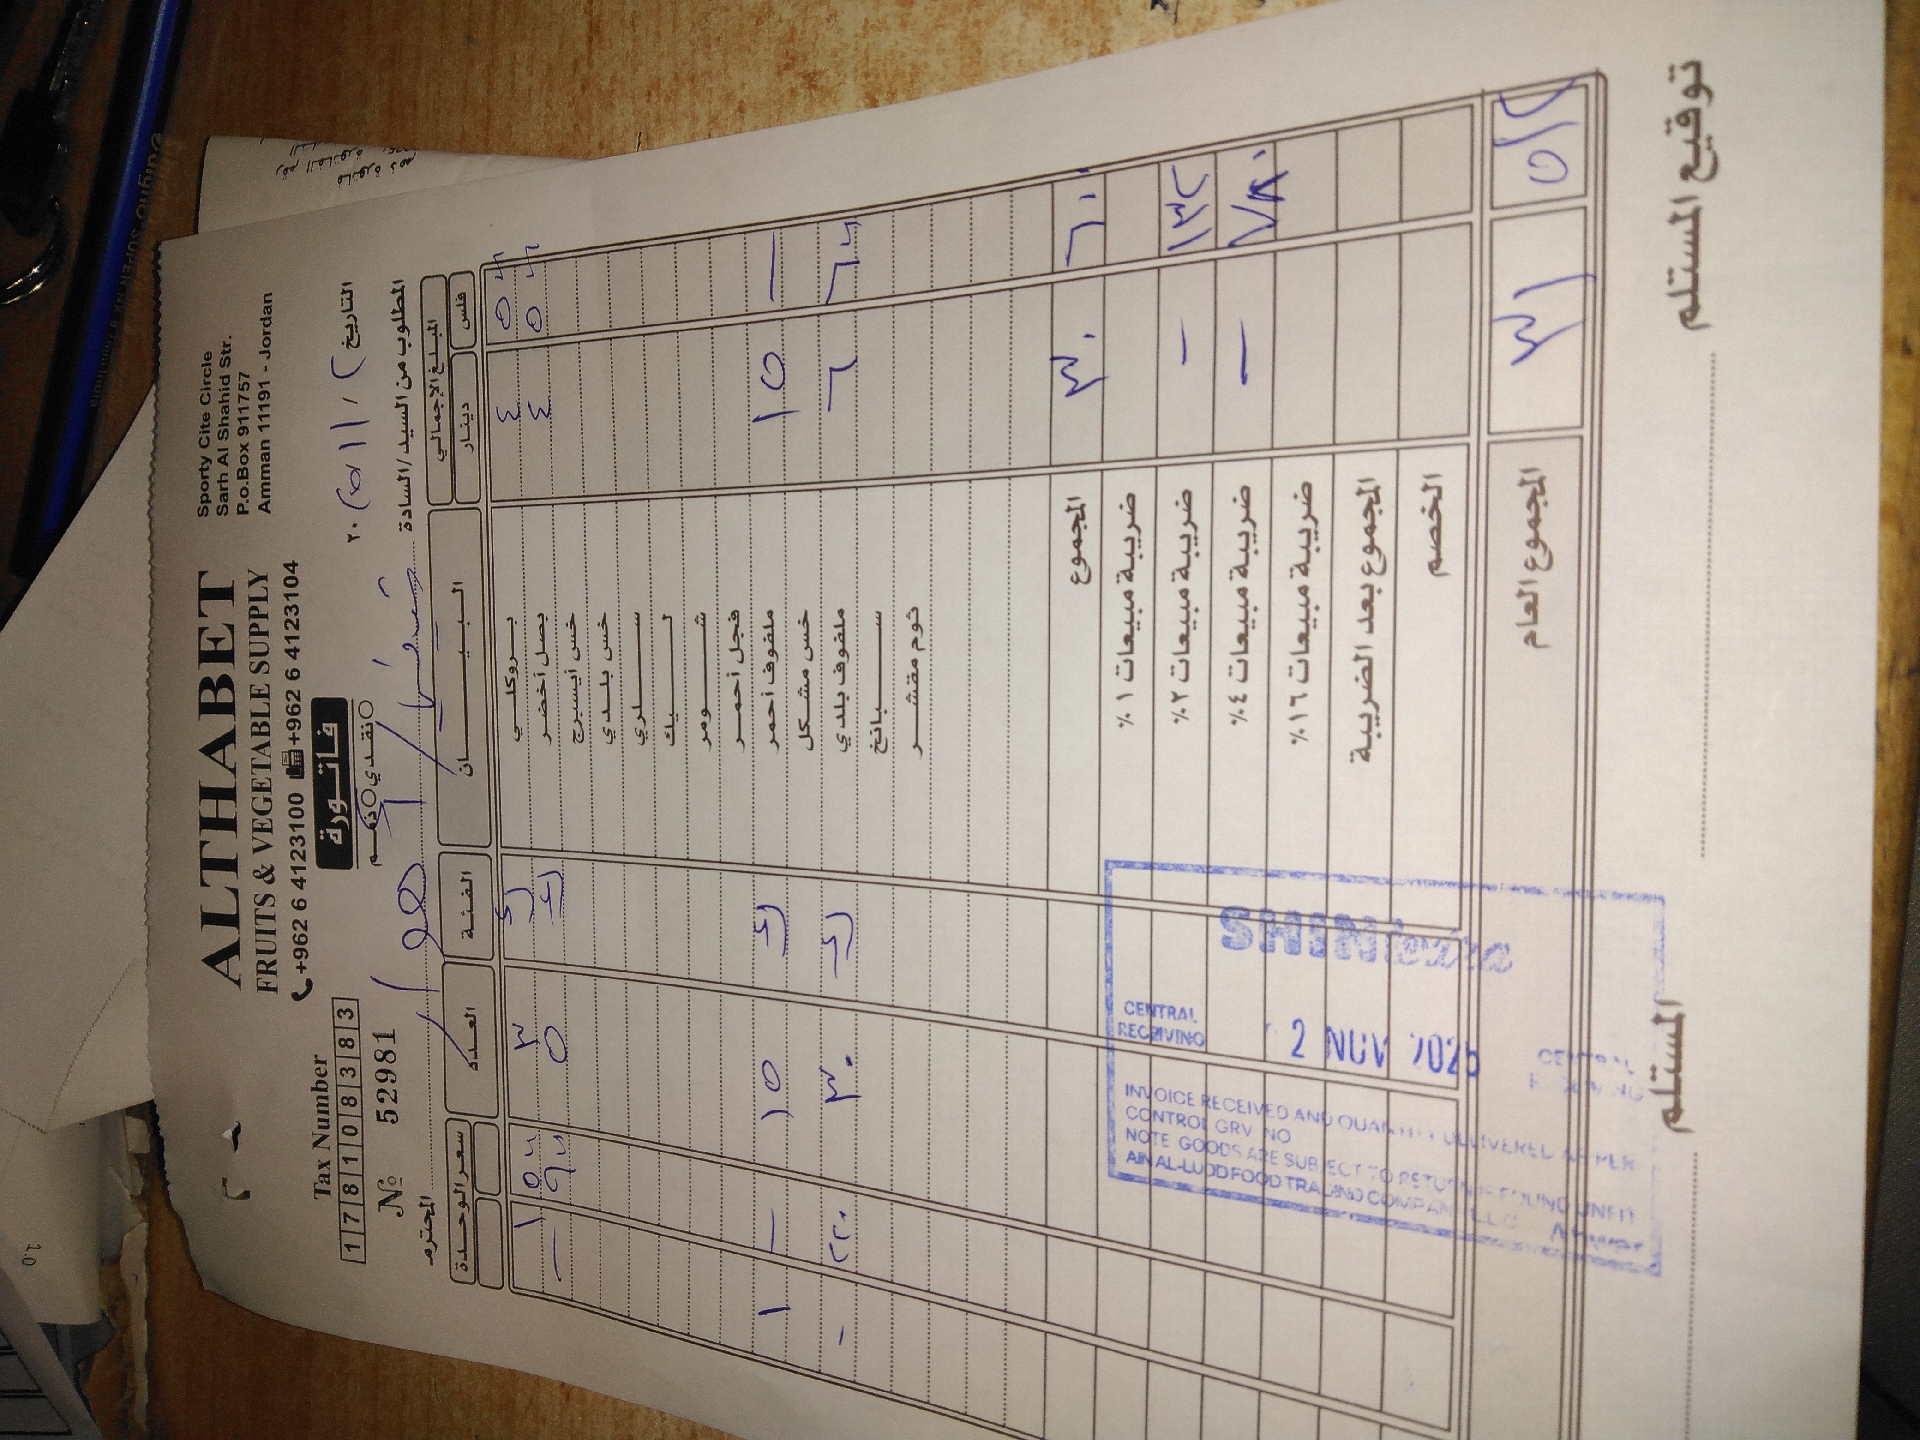 ALTHABET
FRUITS & VEGETABLE SUPPLY
+962 6 4123100 +962 6 4123104
Sporty Cite Circle
Sarh Al Shahid Str.
P.o.Box 911757
Amman 11191 - Jordan
Tax Number
178108383
№ 52981
فاتورة
نقدي ذمم
التاريخ ٢ / ١١ / ٢٠٢٥
المطلوب من السيد/السادة المحترم
المبلغ الإجمالي البيـــــان الفئة العدد سعر الوحدة
فلس دينار
٤ بروكلي ٣
٤ بصل أخضر ٥
خس أيسبرج
خس بلدي
سلري
ليك
شومر
فجل أحمر
— ١٥ ملفوف أحمر ١٥ — ١
خس مشكل
٦ ملفوف بلدي ٣٠ ٢٢٠ -
سبانخ
ثوم مقشر
٦٠٠ ٣٠ المجموع
ضريبة مبيعات ١٪
١٣٢ — ضريبة مبيعات ٢٪
٧٨٠ — ضريبة مبيعات ٤٪
ضريبة مبيعات ١٦٪
المجموع بعد الضريبة
الخصم
٥١٢ ٣١ المجموع العام
توقيع المستلم المستلم
CENTRAL
RECEIVING
2 NOV 2025
INVOICE RECEIVED AND QUANTITY DELIVERED AS PER
CONTROL GRV NO
NOTE GOODS ARE SUBJECT TO RETURN IF FOUND UNFIT
AIN AL-LUDD FOOD TRADING COMPANY L.L.C